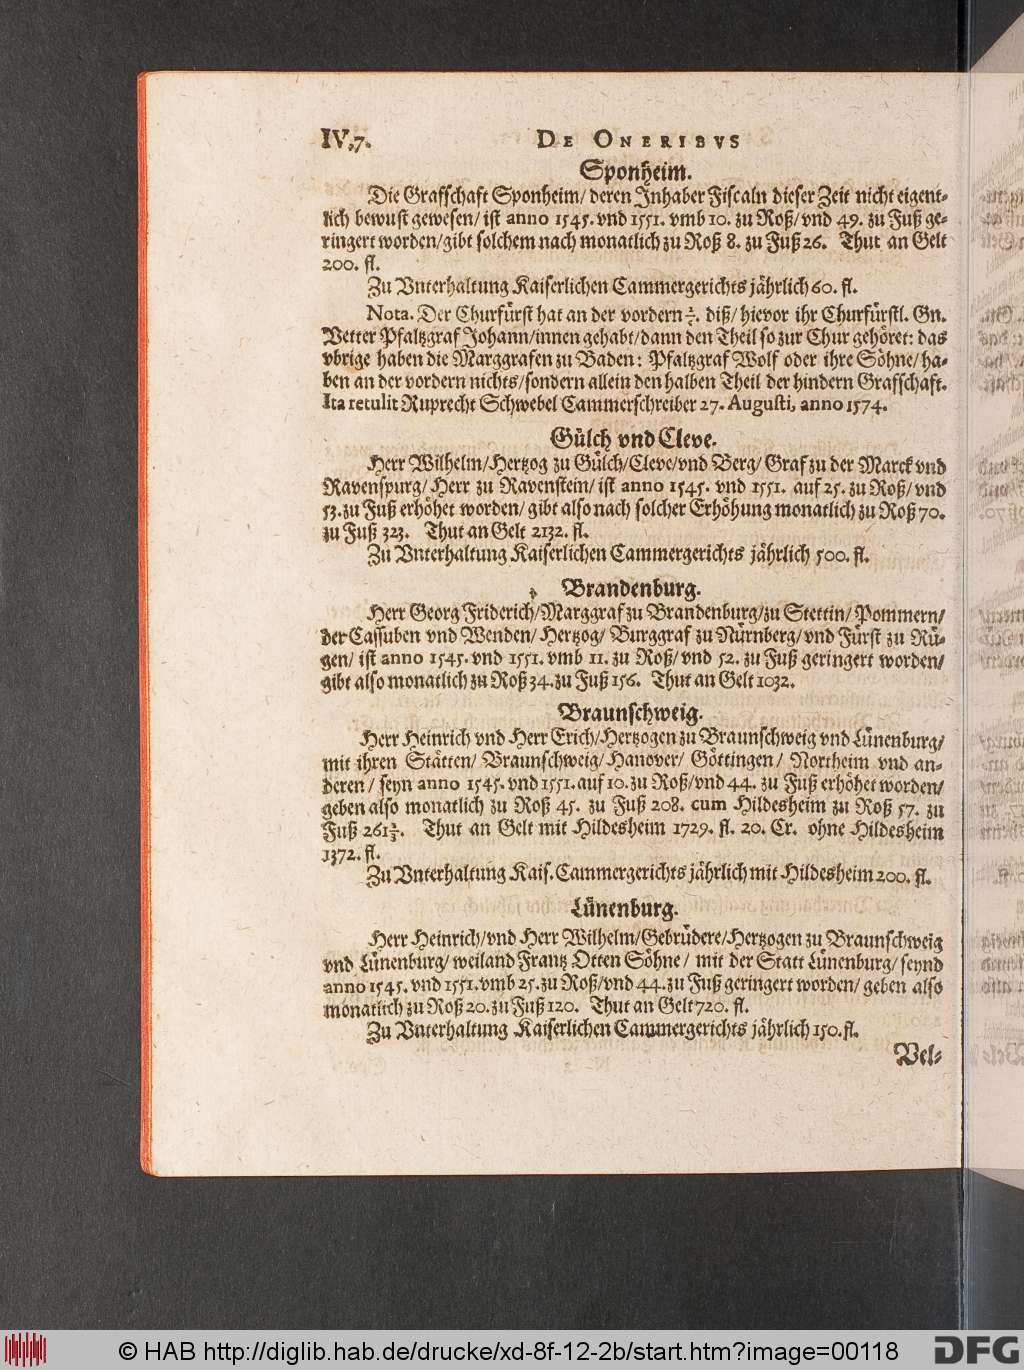 IV,7. DE ONERIBVS
Sponheim.
Die Grafschaft Sponheim/ deren Jnhaber Fiscaln dieser Zeit nicht eigent-
lich bewust gewesen/ ist anno 1545. vnd 1551. vmb 10. zu Roß/ vnd 49. zu Fuß ge-
ringert worden/ gibt solchem nach monatlich zu Roß 8. zu Fuß 26. Thut an Gelt
200. fl.
Zu Vnterhaltung Kaiserlichen Cammergerichts jährlich 60. fl.
Nota. Der Churfürst hat an der vordern diß/ hievor ihr Churfürstl. Gn.
Vetter Pfaltzgraf Johann/ innen gehabt/ dann den Theil so zur Chur gehöret: das
vbrige haben die Marggrafen zu Baden: Pfaltzgraf Wolf oder ihre Söhne/ ha-
ben an der vordern nichts/ sondern allein den halben Theil der hindern Grafschaft.
Ita retulit Ruprecht Schwebel Cammerschreiber 27. Augusti, anno 1574.
Gülch vnd Cleve.
Herr Wilhelm/ Hertzog zu Gülch/ Cleve/ vnd Berg/ Graf zu der Marck vnd
Ravenspurg/ Herr zu Ravenstein/ ist anno 1545. vnd 1551. auf 25. zu Roß/ vnd
53. zu Fuß erhöhet worden/ gibt also nach solcher Erhöhung monatlich zu Roß 70.
zu Fuß 323. Thut an Gelt 2132. fl.
Zu Vnterhaltung Kaiserlichen Cammergerichts jährlich 500. fl.
Brandenburg.
Herr Georg Friderich/ Marggraf zu Brandenburg/ zu Stettin/ Pommern/
der Cassuben vnd Wenden/ Hertzog/ Burggraf zu Nürnberg/ vnd Fürst zu Rü-
gen/ ist anno 1545. vnd 1551. vmb 11. zu Roß/ vnd 52. zu Fuß geringert worden/
gibt also monatlich zu Roß 34. zu Fuß 156. Thut an Gelt 1032.
Braunschweig.
Herr Heinrich vnd Herr Erich/ Hertzogen zu Braunschweig vnd Lünenburg/
mit ihren Stätten/ Braunschweig/ Hanover/ Göttingen/ Northeim vnd an-
deren/ seyn anno 1545. vnd 1551. auf 10. zu Roß/ vnd 44. zu Fuß erhöhet worden/
geben also monatlich zu Roß 45. zu Fuß 208. cum Hildesheim zu Roß 57. zu
Fuß 261⅔. Thut an Gelt mit Hildesheim 1729. fl. 20. Cr. ohne Hildesheim
1372. fl.
Zu Vnterhaltung Kais. Cammergerichts jährlich mit Hildesheim 200. fl.
Lünenburg.
Herr Heinrich/ vnd Herr Wilhelm/ Gebrüdere/ Hertzogen zu Braunschweig
vnd Lünenburg/ weiland Frantz Otten Söhne/ mit der Statt Lünenburg/ seynd
anno 1545. vnd 1551. vmb 25. zu Roß/ vnd 44. zu Fuß geringert worden/ geben also
monatlich zu Roß 20. zu Fuß 120. Thut an Gelt 720. fl.
Zu Vnterhaltung Kaiserlichen Cammergerichts jährlich 150. fl.
Vel-
© HAB http://diglib.hab.de/drucke/xd-8f-12-2b/start.htm?image=00118
DFG